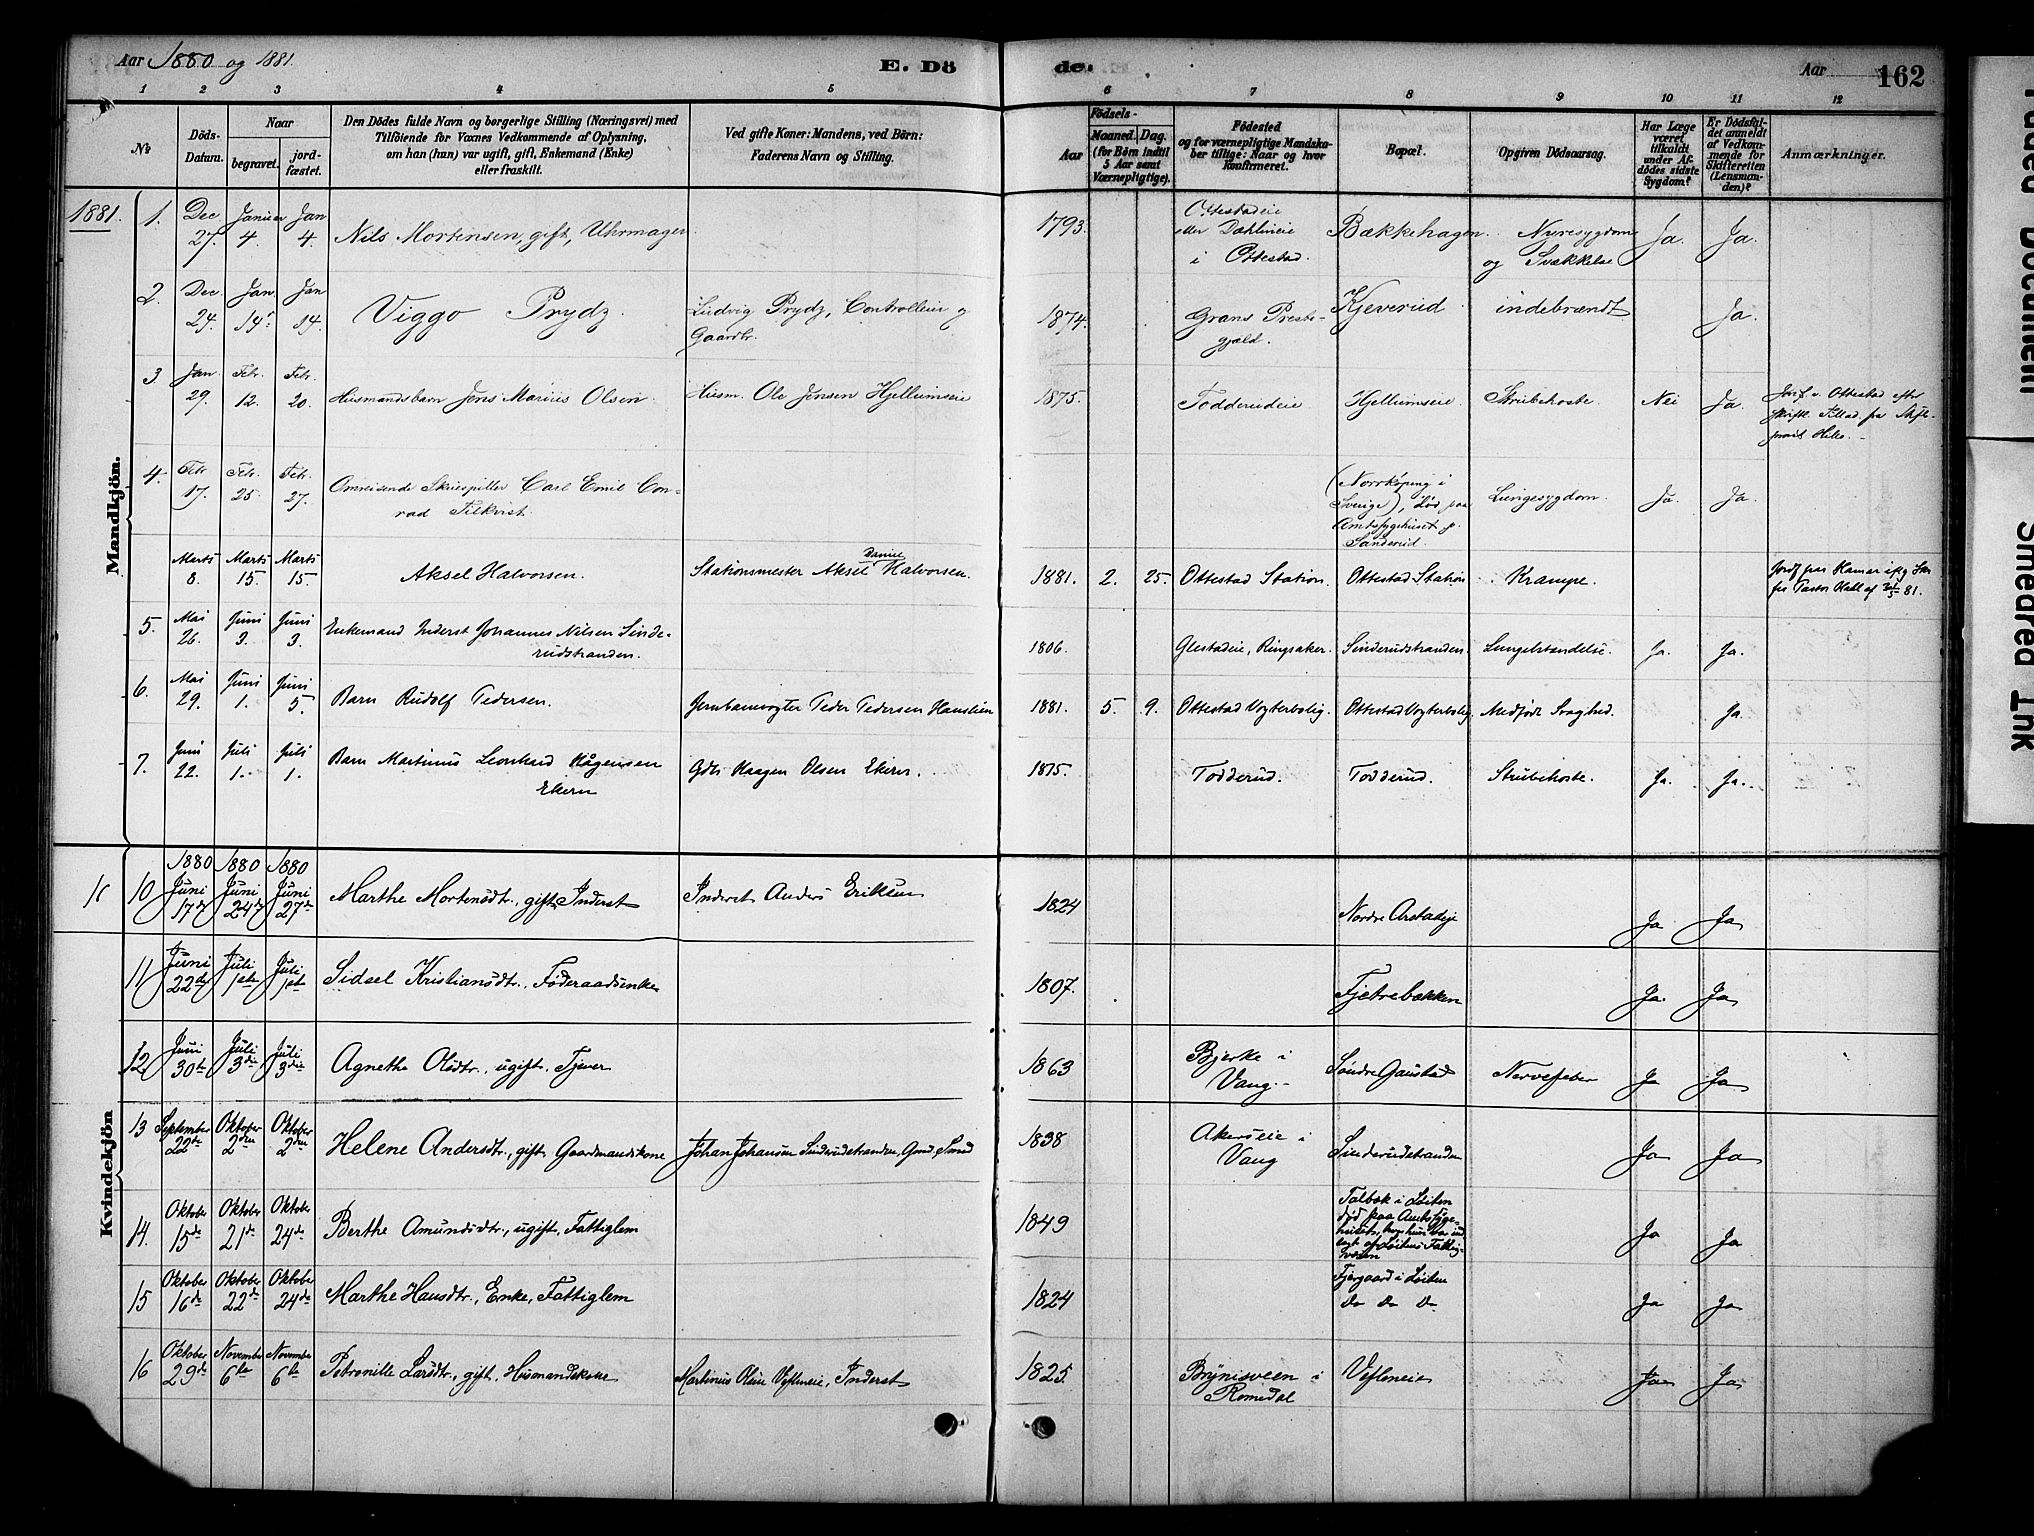 Aar 1880 og 1881.
E. Dö
de:
Aar
162
1 2 3 4 5 6 7 8 9 10 11 12
No
Döds-
Datum.
Naar
begravet.
jord-
fæstet.
Den Dödes fulde Navn og borgerlige Stilling (Næringsvei) med
Tilföiende for Voxnes Vedkommende af Oplysning,
om han (hun) var ugift, gift, Enkemand (Enke)
eller fraskilt.
Ved gifte Koner: Mandens, ved Börn:
Faderens Navn og Stilling.
Födsels-
Aar
Maaned.
Dag.
(for Börn indtil
5 Aar samt
Værnepligtige).
Födested
og for værnepligtige Mandska-
ber tillige: Naar og hvor
konfirmeret.
Bopæl.
Opgiven Dödsaarsag.
Har Læge
været
tilkaldt
under Af-
dödes sidste
Sygdom?
Er Dödsfal-
det anmeldt
af Vedkom-
mende for
Skifteretten
(Lensman-
den)?
Anmærkninger.
Mandkjön.
1881.
1. Dec 27. Januar 4. Jan 4. Nils Mortensen, gift, Uhrmager 1793. Ottestadeie
i Ottestad. Bækkehagen. Nyresygdom
og Svækkelse Ja. Ja.
2. Dec. 24. Jan. 14. Jan 14. Viggo Prydz. Ludvig Prydz, Controlleur og
Gaardbr. 1874. Grans Preste-
gjæld. Kjeverud indebrændt Ja.
3. Jan. 29. Febr. 12. Febr. 20. Husmandsbarn Jens Marius Olsen. Husm. Ole Jensen Hjellumseie 1875. Todderudeie Hjellumseie. Strubehoste. Nei Ja.
4. Febr 17. Febr. 25. Febr. 27. Omreisende Skuespiller Carl Emil Con-
rad (Norrköping i
Sverige), död paa
Amtssygehuset p.
Sanderud. Lungesygdom. Ja. Ja.
Marts 8. Marts 15. Marts 15. Aksel Halvorsen. Stationsmester Aksel Halvorsen. 1881. 2. 25. Ottestad Station. Ottestad Station Krampe.
5. Mai 26. Juni 3. Juni 3. Enkemand Inderst Johannes Nilsen Sinde-
rudstranden. 1806. Glestadeie, Ringsaker. Sinderudstranden. Lungebetændelse. Ja. Ja.
6. Mai 29. Juni 1. Juni 5. Barn Rudolf Pedersen. Jernbanevogter Peder Pedersen Hauslien 1881. 5. 9. Ottestad Vogterbolig. Ottestad Vogterbolig Medfödt Svaghed. Ja.
7. Juni 22. Juli 1. Juli 1. Barn Martinus Leonhard Hågensen
Ekern Gdbr Haagen Olsen Ekern. 1875. Todderud. Todderud. Strubehoste. Ja. Ja.
Kvindekjön
10 1880 Juni 17de 1880 Juni 24de 1880 Juni 27de Marthe Mortensdtr., gift Inderst Inderst Anders Eriksen 1824 Nordre Arstadeje Ja Ja
11 Juni 22de Juli 1ste Juli 1ste Sidsel Kristiansdtr., Föderaadsenke 1807. Fjetrebakken Ja. Ja
12 Juni 30te Juli 3die Juli 3die Agnethe Olsdtr., ugift, Tjener 1863 Bjerke i
Vang. Söndre Gaustad Nervefeber Ja Ja
13 September 22de Oktober 2den Oktober 2den Helene Andersdtr., gift, Gaardmandskone Johan Johansen Sinderudstranden, Gmd, Smed 1838 Akerseie i
Vang Sinderudstranden Ja Ja
14. Oktober 15de Oktober 21de Oktober 24de Berthe Amundsdtr., ugift, Fattiglem 1849 Talbak i Löiten
död paa Amtssyge-
huset, hvor hun var ind
lagt af Löitens Fattig-
væsen Ja Ja
15 Oktober 16de Oktober 22de Oktober 24de Marthe Hansdtr., Enke, Fattiglem 1824 Fjergaard i Löiten
Do Do Do Ja Ja
16 Oktober 29de November 6te November 6te Petronille Larsdtr., gift, Husmandskone Martinus Olsen Vesleneie, Inderst 1825 Brynisveen i
Romedal Vesleneie Ja Ja
Faded Document
Smeared Ink